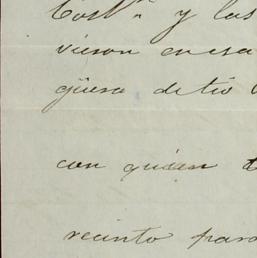 y las
vieron en esa
güera de tio
con quien
recinto para